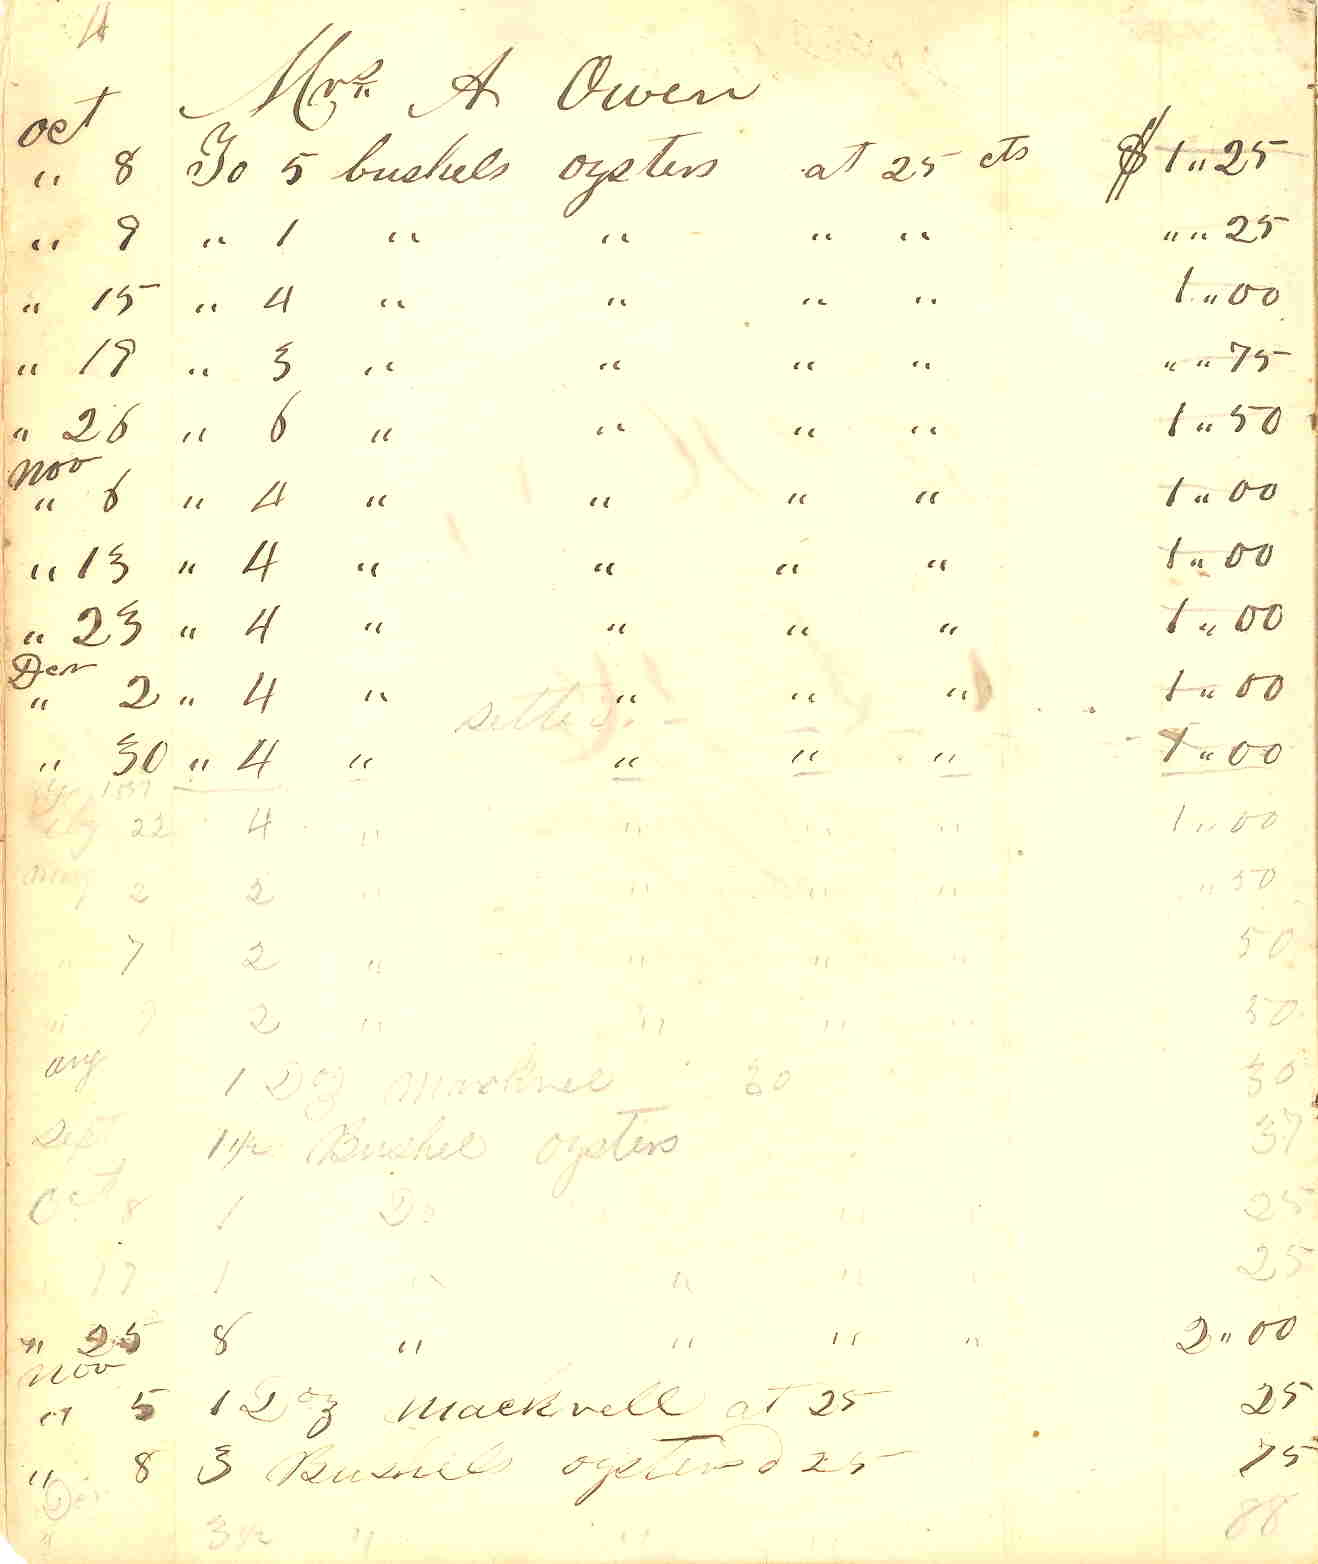 4
Mrs A Owen
Oct
" 8 To 5 bushels oysters at 25 cts $ 1 " 25
" 9 " 1 " " " " " " 25
" 15 " 4 " " " " 1 " 00
" 19 " 3 " " " " " " 75
" 26 " 6 " " " " 1 " 50
Nov
" 6 " 4 " " " " 1 " 00
" 13 " 4 " " " " 1 " 00
" 23 " 4 " " " " 1 " 00
Dec
" 2 " 4 " " " " 1 " 00
settled
" 30 " 4 " " " " 1 " 00
22 4 " " " " 1 " 00
2 2 " " " " " 50
" 7 2 " " " " 50
" 9 2 " " " " 50
Aug 1 Doz Mackrel 30 30
Sept 1 1/2 Bushel oysters 37
Oct 8 1 Do " " 25
" 17 1 " " " " 25
" 25 8 " " " " 2 " 00
Nov
" 5 1 Doz Mackrell at 25 25
" 8 3 Bushels oysters 25 75
Dec
" 3 1/2 " " " 88